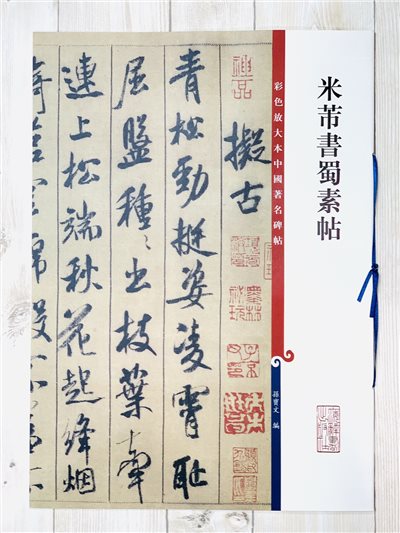 米芾書蜀素帖
彩色放大本中國著名碑帖
孫寶文 編
擬古
青松勁挺姿凌霄恥
屈盤種々出枝葉牽
連上松端秋花起絳烟